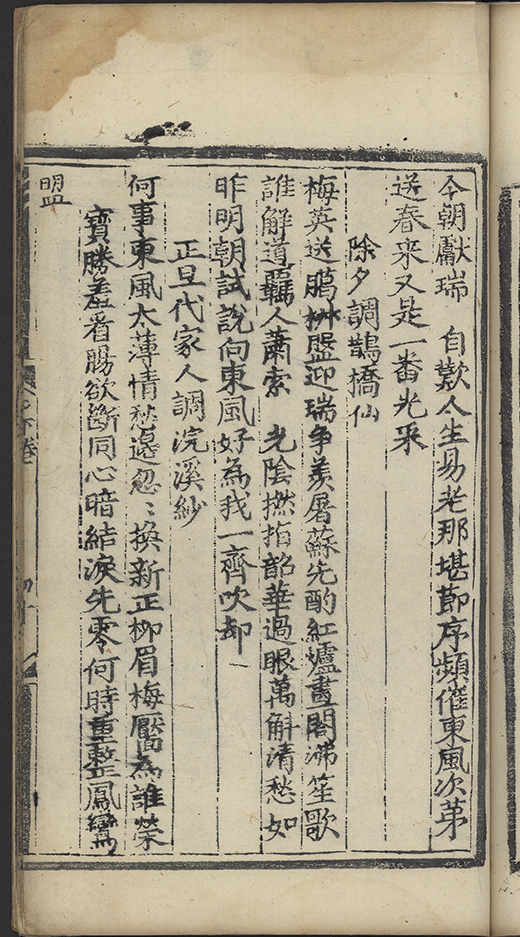 今朝獻瑞　自歎人生易老那堪節序頻催東風次第
送春来又是一番光采
除夕調鵲橋仙
梅英送臈椒盤迎瑞争羡屠蘇先酌紅爐畫閣沸笙歌
誰解道羈人蕭索　光陰撚指韶華過眼萬斛清愁如
昨明朝試說向東風好為我一齊吹却
正旦代家人調浣溪紗
何事東風太薄情愁邊忽〻換新正柳眉梅靨為誰榮
寶勝羞看腸欲斷同心暗結淚先零何時重整鳳鸞
盟
下卷